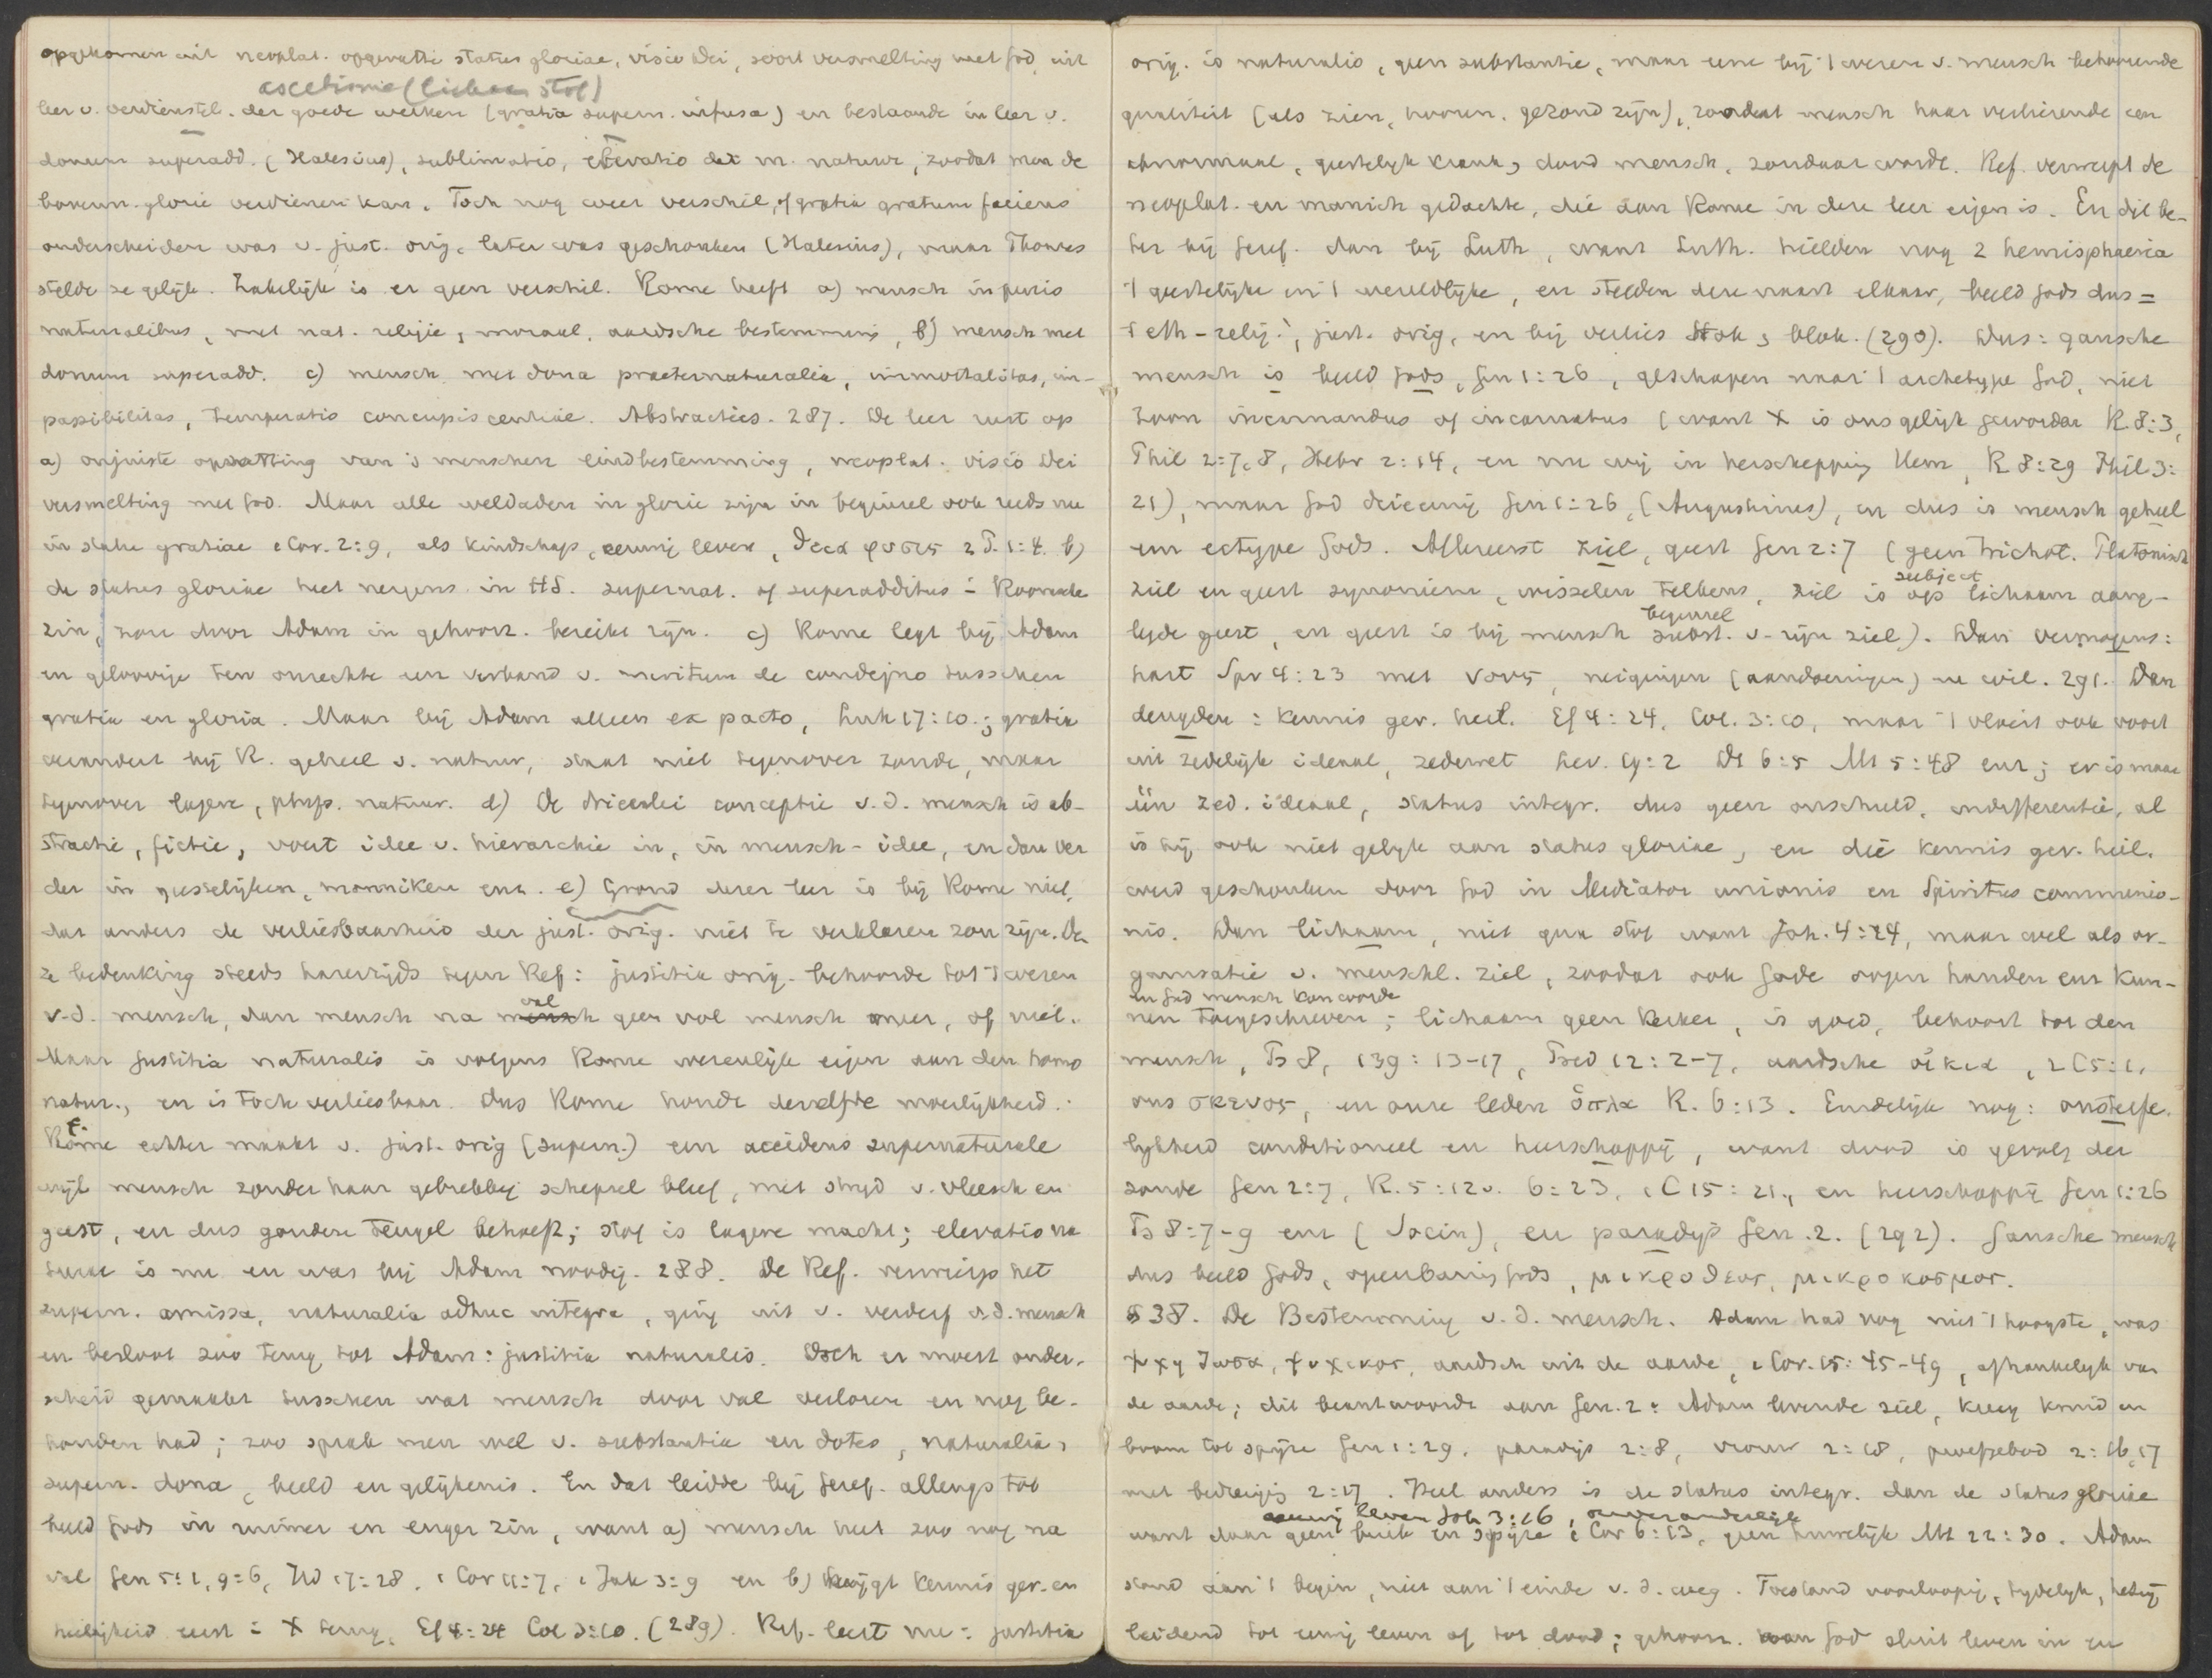 opgekomen uit neoplat. opgevatte status gloriae, visio Dei, soort versmelting met God, uit
ascetisme (lichaam stof)
leer v. verdienstel. der goede werken (gratia supern. infusa) en bestaande in leer v.
donum superadd. (Halesius), sublimatio, elevatio der m. natuur, zoodat men de
bovenn. glorie verdienen kan. Toch nog weer verschil, of gratia gratum faciens
onderscheiden was v. just. orig. later was geschonken (Halesius), maar Thomas
stelde ze gelijk. Zakelijk is er geen verschil. Rome heeft a) mensch in puris
naturalibus, met nat. religie, moraal, aardsche bestemming, b) mensch met
donum superadd. c) mensch met dona praeternaturalia, immortalitas, im-
passibilitas, temperatio concupiscentiae. Abstracties. 287. De leer rust op
a) onjuiste opvatting van 's menschen eindbestemming, neoplat. visio Dei
versmelting met God. Maar alle weldaden in glorie zijn in beginsel ook reeds nu
in statu gratiae 1 Cor. 2:9, als kindschap, eeuwig leven, θεια φυσις 2 P. 1:4. b)
de status gloriae heet nergens in H.S. supernat. of superadditus = Roomsche
zin, zou door Adam in gehoorz. bereikt zijn. c) Rome legt bij Adam
en geloovige ten onrechte een verband v. meritum de condigno tusschen
gratia en gloria. Maar bij Adam alleen ex pacto, Luk 17:10.; gratia
verandert bij R. geheel v. natuur, staat niet tegenover zonde, maar
tegenover lagere, phys. natuur. d) De drieerlei conceptie v.d. mensch is ab-
stractie, fictie, voert idee v. hierarchie in, in mensch-idee, en dan ver
der in geestelijken, monniken enz. e) Grond dezer leer is bij Rome niet,
dat anders de verliesbaarheid der just. orig. niet te verklaren zou zijn. De
ze bedenking steeds harerzijds tegen Ref: justitia orig. behoorde tot 't wezen
val
v.d. mensch, dan mensch na mensch geen vol mensch meer, of niet.
Maar justitia naturalis is volgens Rome wezenlijk eigen aan den homo
natur., en is toch verliesbaar. Dus Rome hindi dezelfde moeilijkheid.
F.
Rome echter maakt v. just. orig (supern.) een accidens supernaturale
wijl mensch zonder haar gebrekkig schepsel bleef, met strijd v. vleesch en
geest, en dus gondere teugel behoeft; stof is lagere macht; elevatio na
turae is nu en was bij Adam noodig. 288. De Ref. verwierp het
supern. amissa, naturalia adhuc integra, ging uit v. verderf v.d. mensch
en besloot zoo terug tot Adam: justitia naturalis. Doch er moest onder-
scheid gemaakt tusschen wat mensch door val verloren en nog be-
houden had; zoo sprak men wel v. substantia en dotes, naturalia,
supern. dona, beeld en gelijkenis. En dat leidde bij Geref. allengs tot
beeld Gods in ruimer en enger zin, want a) mensch heet zoo nog na
val Gen 5:1, 9:6, Hd 17:28, 1 Cor 11:7, Jak 3:9 en b) krijgt kennis ger. en
heiligheid eerst = X terug, Ef 4:24 Col 3:10. (289). Ref. leert nu: justitia
orig. is naturalis, geen substantie, maar eene bij 't wezen v. mensch behoorende
qualiteit (als zien, hooren, gezond zijn), zoodat mensch haar verliezende een
abnormaal, geestelijk krank, dood mensch, zondaar wordt. Ref. verwerpt de
neoplat. en manich gedachte, die aan Rome in deze leer eigen is. En dit be-
ter bij Geref. dan bij Luth, want Luth. hielden nog 2 hemisphaeria
't geestelijke en 't wereldlijke, en stelden deze naast elkaar, beeld Gods dus =
't eth-relig., just. orig, en bij verlies stok, blok. (290). Dus: gansche
mensch is beeld Gods, Gen 1:26, geschapen naar 't archetype God, niet
Zoon incarnandus of incarnatus (want X is ons gelijk geworden R. 8:3,
Phil 2:7,8, Hebr 2:14, en nu wij in herschepping Hem, R 8:29 Phil 3:
21), maar God drieeenig Gen 1:26, (Augustinus), en dus is mensch geheel
een ectype Gods. Allereerst ziel, geest Gen 2:7 (geen trichot. Platonisch
subject
ziel en geest synoniem, wisselen telkens, ziel is op lichaam aang-
beginsel
legde geest, en geest is bij mensch subst. v. zijn ziel). Dan vermogens:
hart Spr 4:23 met νους, neigingen (aandoeningen) en wil. 291. Dan
deugden: kennis ger. heil. Ef 4:24, Col. 3:10, maar 't vloeit ook voort
uit zedelijk ideaal, zedewet Lev. 19:2 Dt 6:5 Mt 5:48 enz; er is maar
één zed. ideaal, status integr. dus geen onschuld, indifferentie, al
is hij ook niet gelijk aan status gloriae, en die kennis ger. heil.
werd geschonken door God in Mediator unionis en Spiritus communio-
nis. Dan lichaam, niet qua stof want Joh. 4:24, maar wel als or-
ganisatie v. menschl. ziel, zoodat ook Gode oogen handen enz kun-
en God mensch kon worden
nen toegeschreven; lichaam geen kerker, is goed, behoort tot den
mensch, Ps 8, 139:13-17, Pred 12:2-7, aardsche οικια, 2 C 5:1,
ons σκευος, en onze leden ὁπλα R. 6:13. Eindelijk nog: onsterfe-
lijkheid conditioneel en heerschappij, want dood is gevolg der
zonde Gen 2:7, R. 5:12v. 6:23, 1 C 15:21, en heerschappij Gen 1:26
Ps 8:7-9 enz (Socin), en paradijs Gen. 2. (292). Gansche mensch
dus beeld Gods, openbaring Gods, μικροθεος, μικροκοσμος.
§ 38. De Bestemming v.d. mensch. Adam had nog niet 't hoogste, was
ψυχη ζωσα, ψυχικος, aardsch uit de aarde, 1 Cor. 15:45-49, afhankelijk van
de aarde; dit beantwoordt aan Gen. 2: Adam levende ziel, kreeg kruid en
boom tot spijze Gen 1:29, paradijs 2:8, vrouw 2:18, proefgebod 2:16,17
met bedreiging 2:17. Heel anders is de status integr. dan de status gloriae
eeuwig leven Joh 3:16, onveranderlijk
want daar geen buik en spijze 1 Cor 6:13, geen huwelijk Mt 22:30. Adam
stond aan 't begin, niet aan 't einde v.d. weg. Toestand voorloopig, tijdelijk, hetzij
leidend tot eeuwig leven of tot dood; gehoorz. aan God sluit leven in en